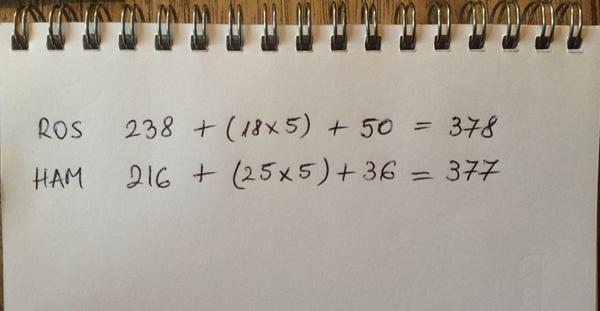 ROS 238 + (18×5) + 50 = 378
HAM 216 + (25×5) + 36 = 377